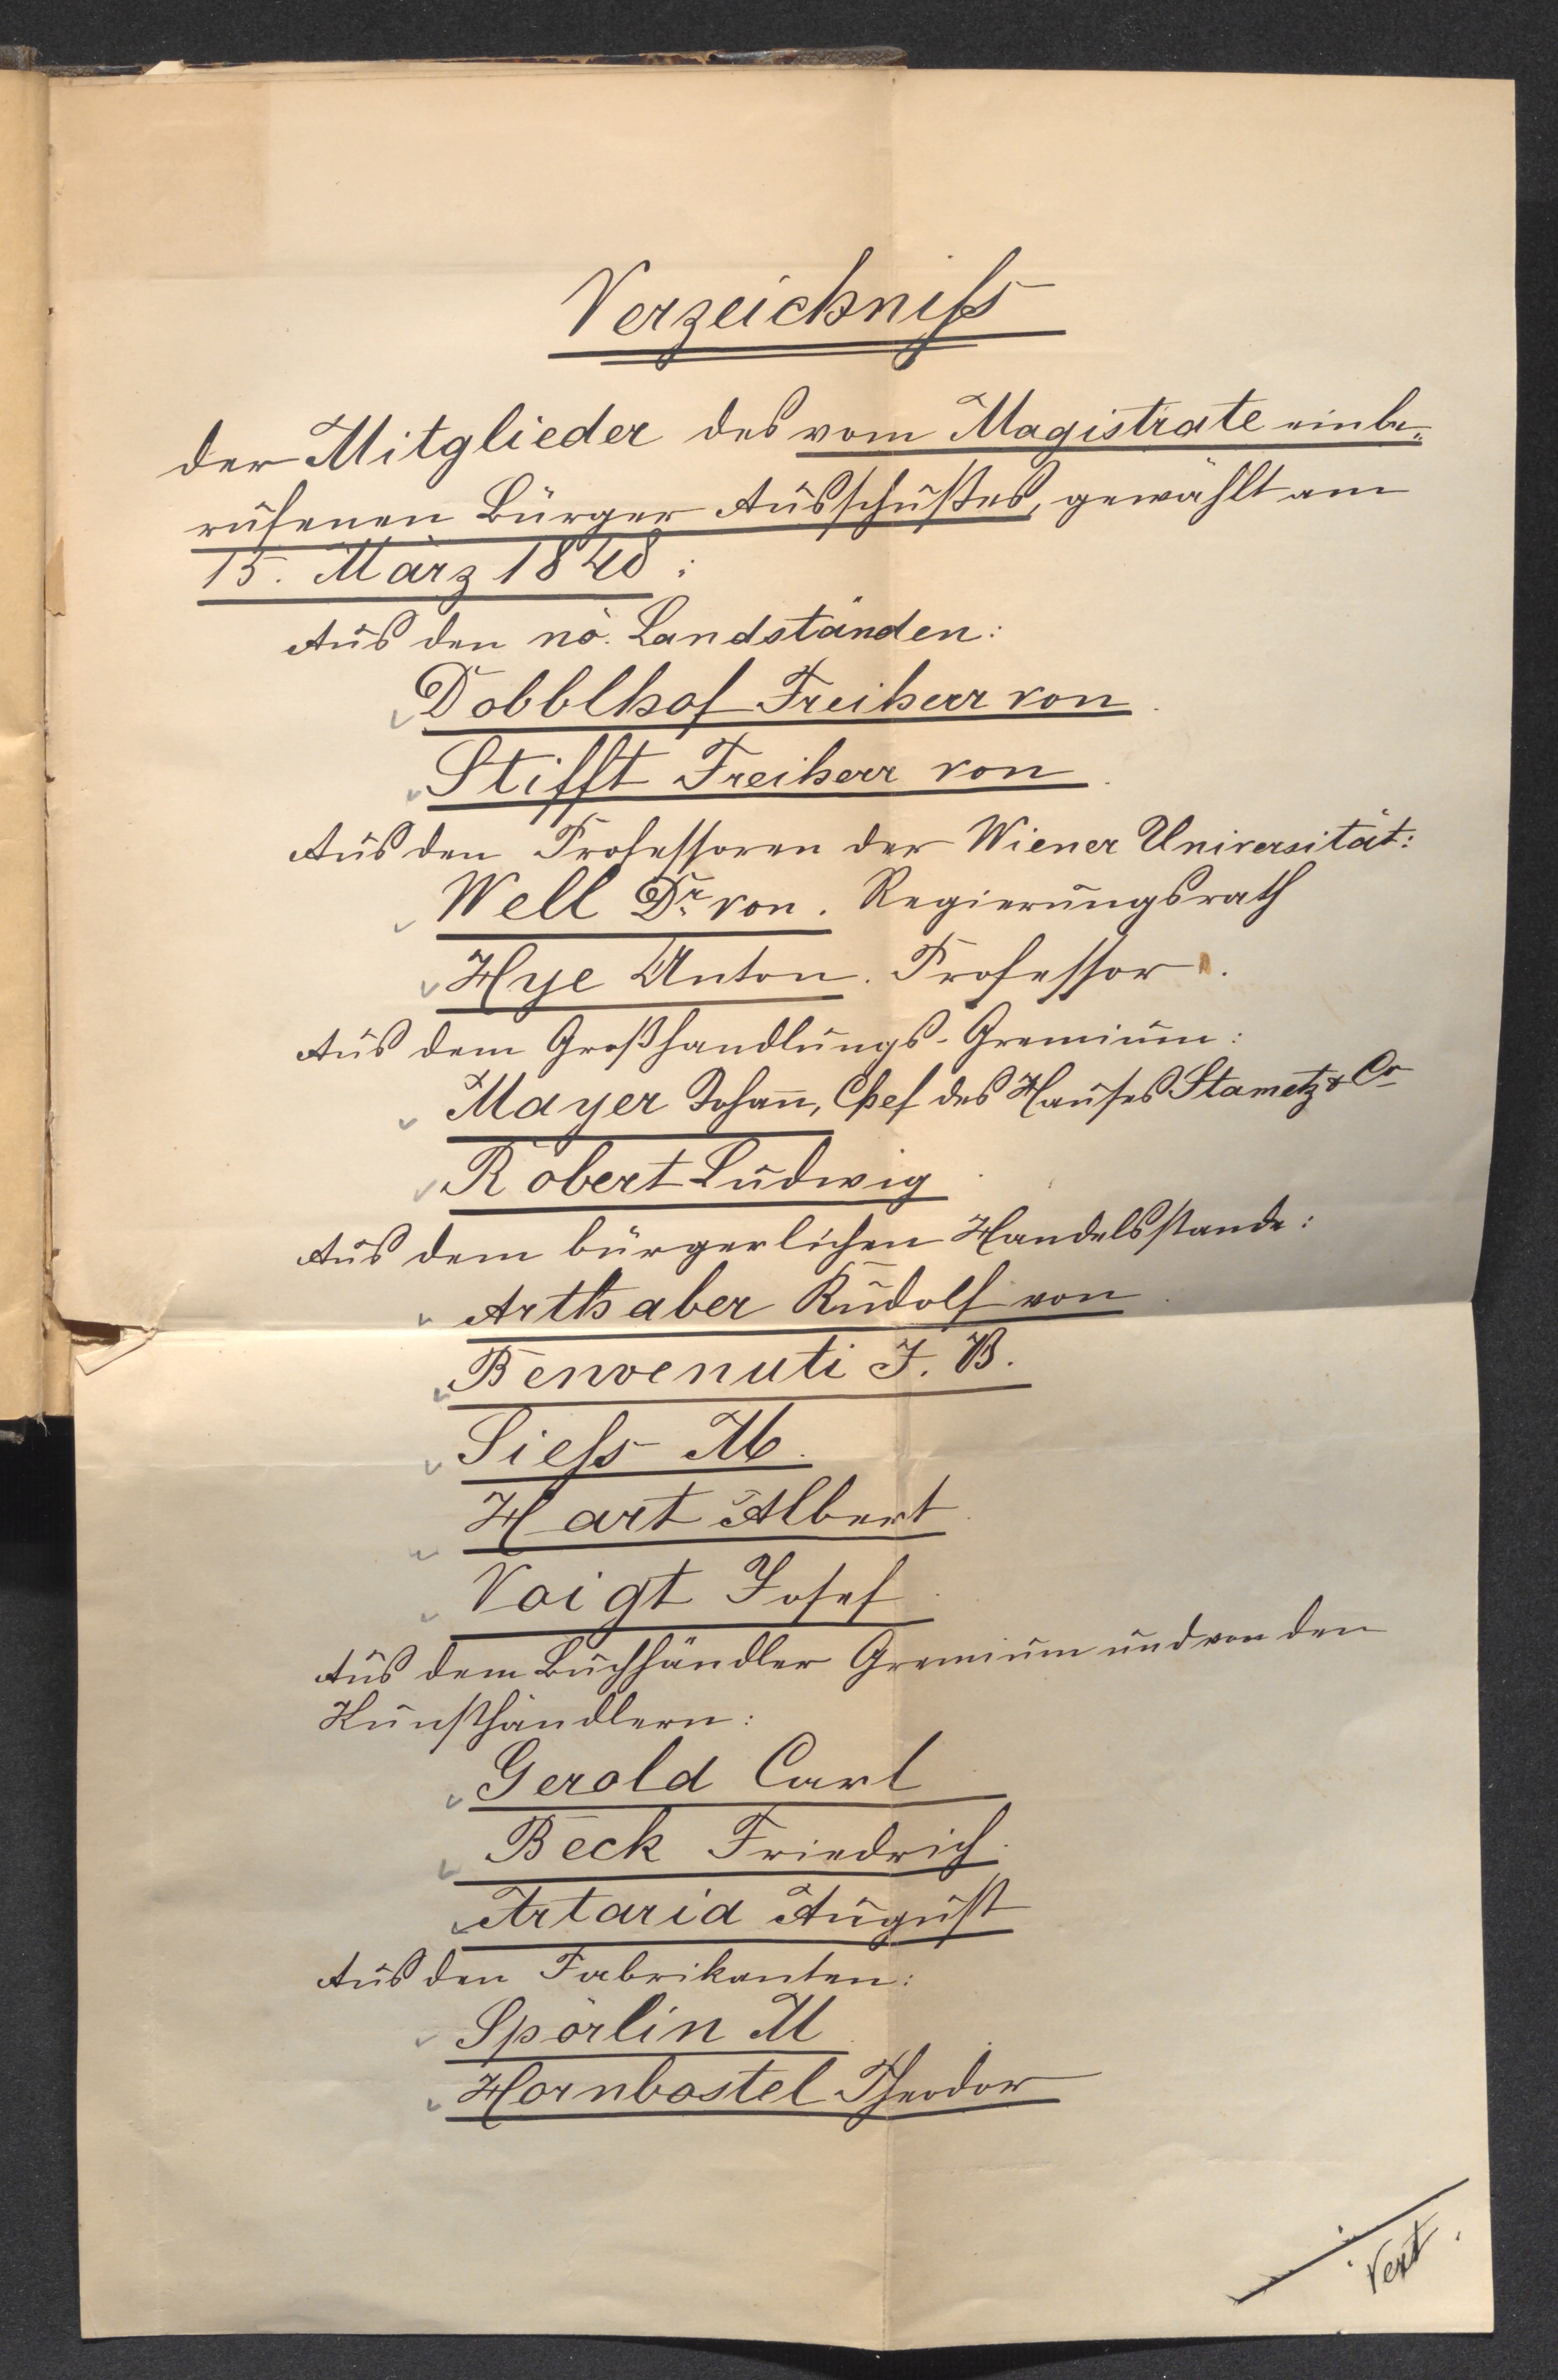 Verzeichniß
der Mitglieder des vom Magistrate einbe-
rufenen Bürger Ausschußes, gewählt am
15. März 1848:
Aus den nö. Landständen:
Dobblhof Freiherr von
Stifft Freiherr von
Aus den Professoren der Wiener Universität:
Well Dr. von. Regierungsrath
Hye Anton. Professor.
Aus dem Großhandlungs-Gremium:
Mayer Johan̄, Chef des Hauses Stametz & Co
Robert Ludwig
Aus dem bürgerlichen Handelsstande:
Arthaber Rudolf von
Benvenuti J. B.
Sieß M.
Hart Albert
Voigt Josef
Aus dem Buchhändler Gremium und von den
Kunsthändlern:
Gerold Carl
Beck Friedrich.
Artaria August
Aus den Fabrikanten:
Spörlin M
Hornbostel Theodor